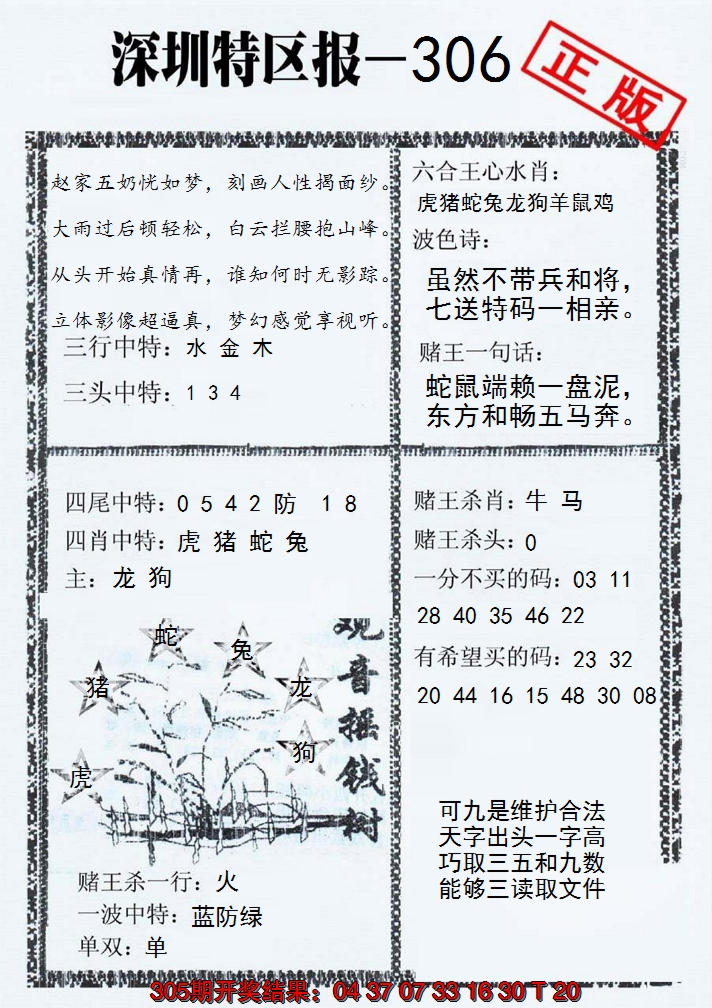 深圳特区报-306
正版
赵家五奶恍如梦，刻画人性揭面纱。
大雨过后顿轻松，白云拦腰抱山峰。
从头开始真情再，谁知何时无影踪。
立体影像超逼真，梦幻感觉享视听。
三行中特：水 金 木
三头中特：1 3 4
六合王心水肖：
虎猪蛇兔龙狗羊鼠鸡
波色诗：
虽然不带兵和将，
七送特码一相亲。
赌王一句话：
蛇鼠端赖一盘泥，
东方和畅五马奔。
四尾中特：0 5 4 2 防 1 8
四肖中特：虎 猪 蛇 兔
主：龙 狗
蛇
兔
猪
龙
狗
虎
观音摇钱树
赌王杀一行：火
一波中特：蓝防绿
单双：单
赌王杀肖：牛 马
赌王杀头：0
一分不买的码：03 11
28 40 35 46 22
有希望买的码：23 32
20 44 16 15 48 30 08
可九是维护合法
天字出头一字高
巧取三五和九数
能够三读取文件
305期开奖结果：04 37 07 33 16 30 T 20